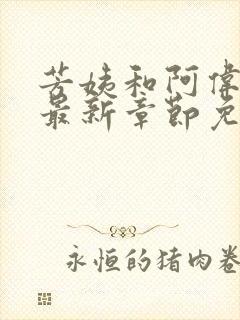 芳姨和阿伟
最新章节免
永恒的猪肉卷